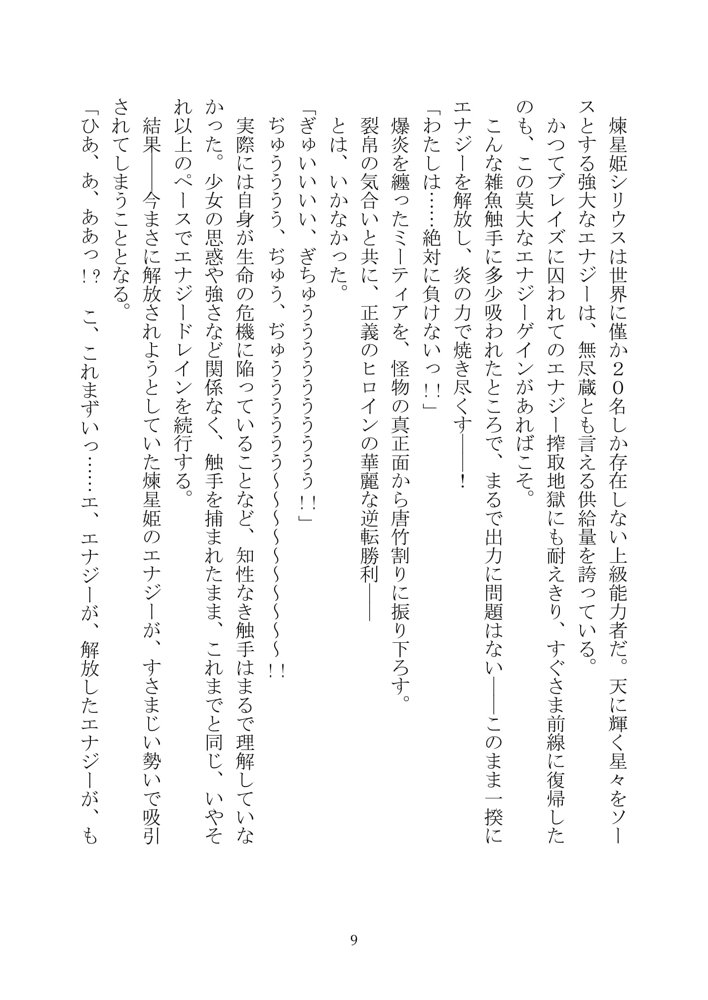 煉星姫シリウスは世界に僅か２０名しか存在しない上級能力者だ。天に輝く星々をソー
スとする強大なエナジーは、無尽蔵とも言える供給量を誇っている。
　かつてブレイズに囚われてのエナジー搾取地獄にも耐えきり、すぐさま前線に復帰した
のも、この莫大なエナジーゲインがあればこそ。
　こんな雑魚触手に多少吸われたところで、まるで出力に問題はない――このまま一揆に
エナジーを解放し、炎の力で焼き尽くす――！
「わたしは……絶対に負けないっ!!」
　爆炎を纏ったミーティアを、怪物の真正面から唐竹割りに振り下ろす。
　裂帛の気合いと共に、正義のヒロインの華麗な逆転勝利――
　とは、いかなかった。
「ぎゅいいいい、ぎちゅうううううううううう!!」
　ぢゅうううう、ぢゅう、ぢゅうううううう～～～～～～～～～～!!
　実際には自身が生命の危機に陥っていることなど、知性なき触手はまるで理解していな
かった。少女の思惑や強さなど関係なく、触手を捕まれたまま、これまでと同じ、いやそ
れ以上のペースでエナジードレインを続行する。
　結果――今まさに解放されようとしていた煉星姫のエナジーが、すさまじい勢いで吸引
されてしまうこととなる。
「ひあ、あ、ああっ!?　こ、これまずいっ……エ、エナジーが、解放したエナジーが、も
9